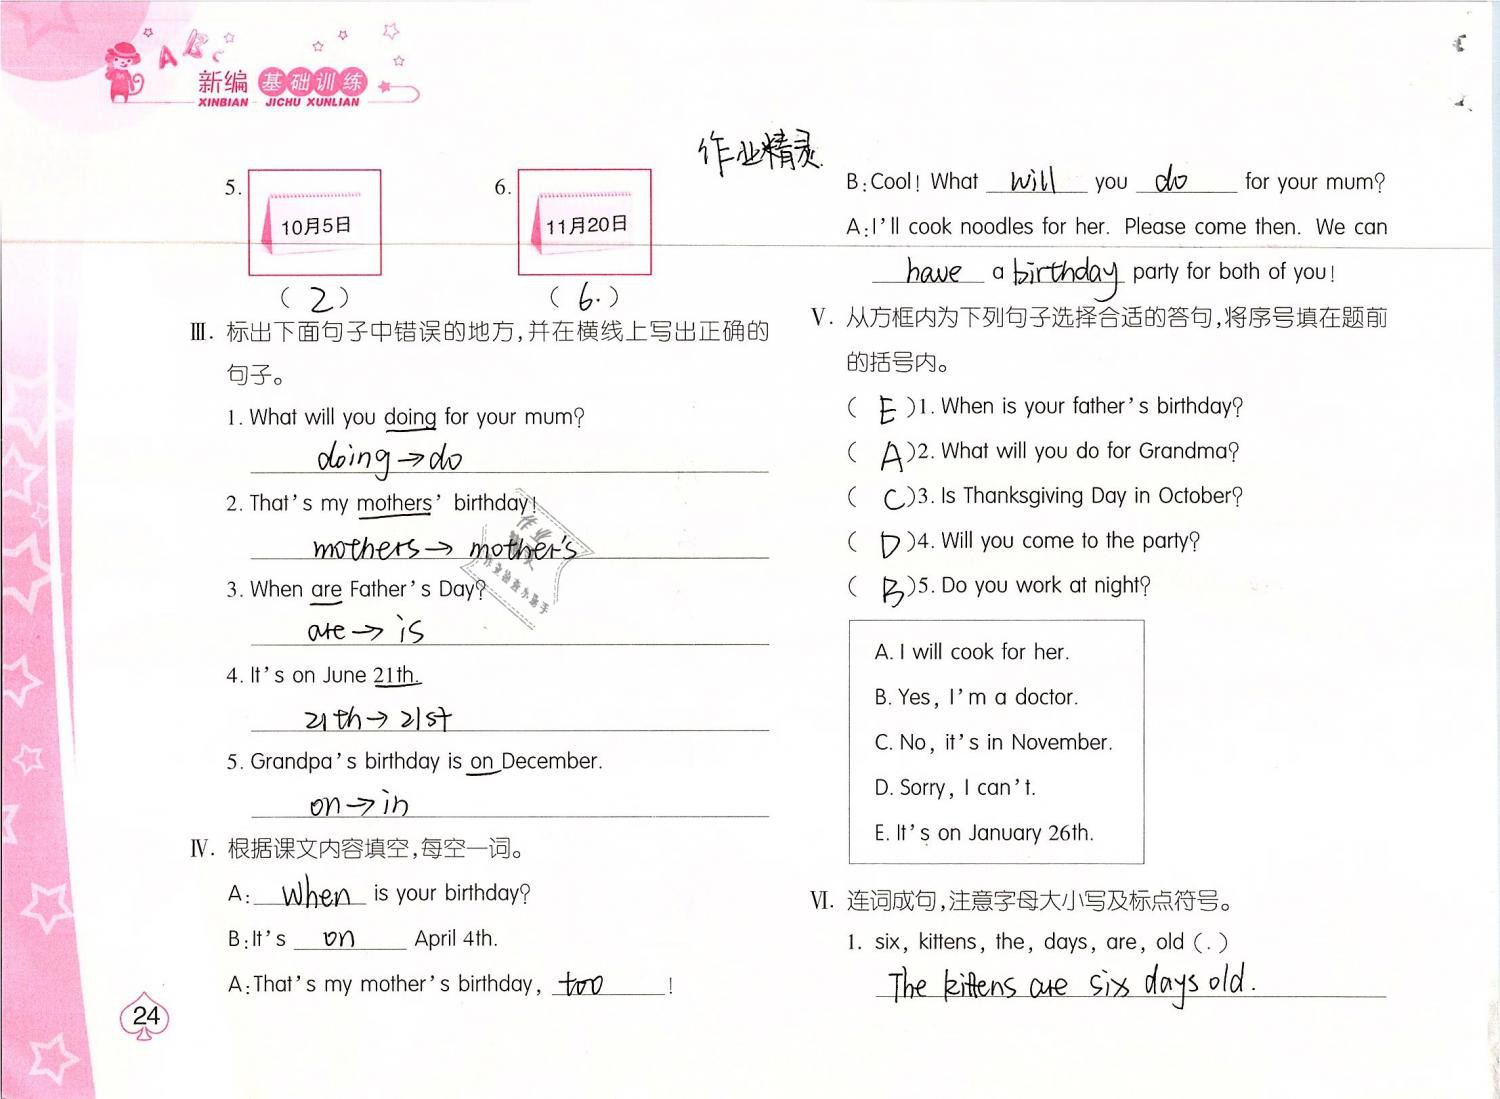 ABC
新编 基础训练
XINBIAN JICHU XUNLIAN
作业精灵
5.
10月5日
( 2 )
6.
11月20日
( 6. )
Ⅲ. 标出下面句子中错误的地方,并在横线上写出正确的
句子。
1. What will you doing for your mum?
doing→do
2. That's my mothers' birthday!
mothers→ mother's
3. When are Father's Day?
are→ is
4. It's on June 21th.
21th→ 21st
5. Grandpa's birthday is on December.
on→in
Ⅳ. 根据课文内容填空,每空一词。
A: when is your birthday?
B:It's on April 4th.
A:That's my mother's birthday, too !
24
B:Cool! What will you do for your mum?
A:I'll cook noodles for her. Please come then. We can
have a birthday party for both of you!
Ⅴ. 从方框内为下列句子选择合适的答句,将序号填在题前
的括号内。
( E )1. When is your father's birthday?
( A )2. What will you do for Grandma?
( C )3. Is Thanksgiving Day in October?
( D )4. Will you come to the party?
( B )5. Do you work at night?
A. I will cook for her.
B. Yes, I'm a doctor.
C. No, it's in November.
D. Sorry, I can't.
E. It's on January 26th.
Ⅵ. 连词成句,注意字母大小写及标点符号。
1. six, kittens, the, days, are, old (.)
The kittens are six days old.
作业